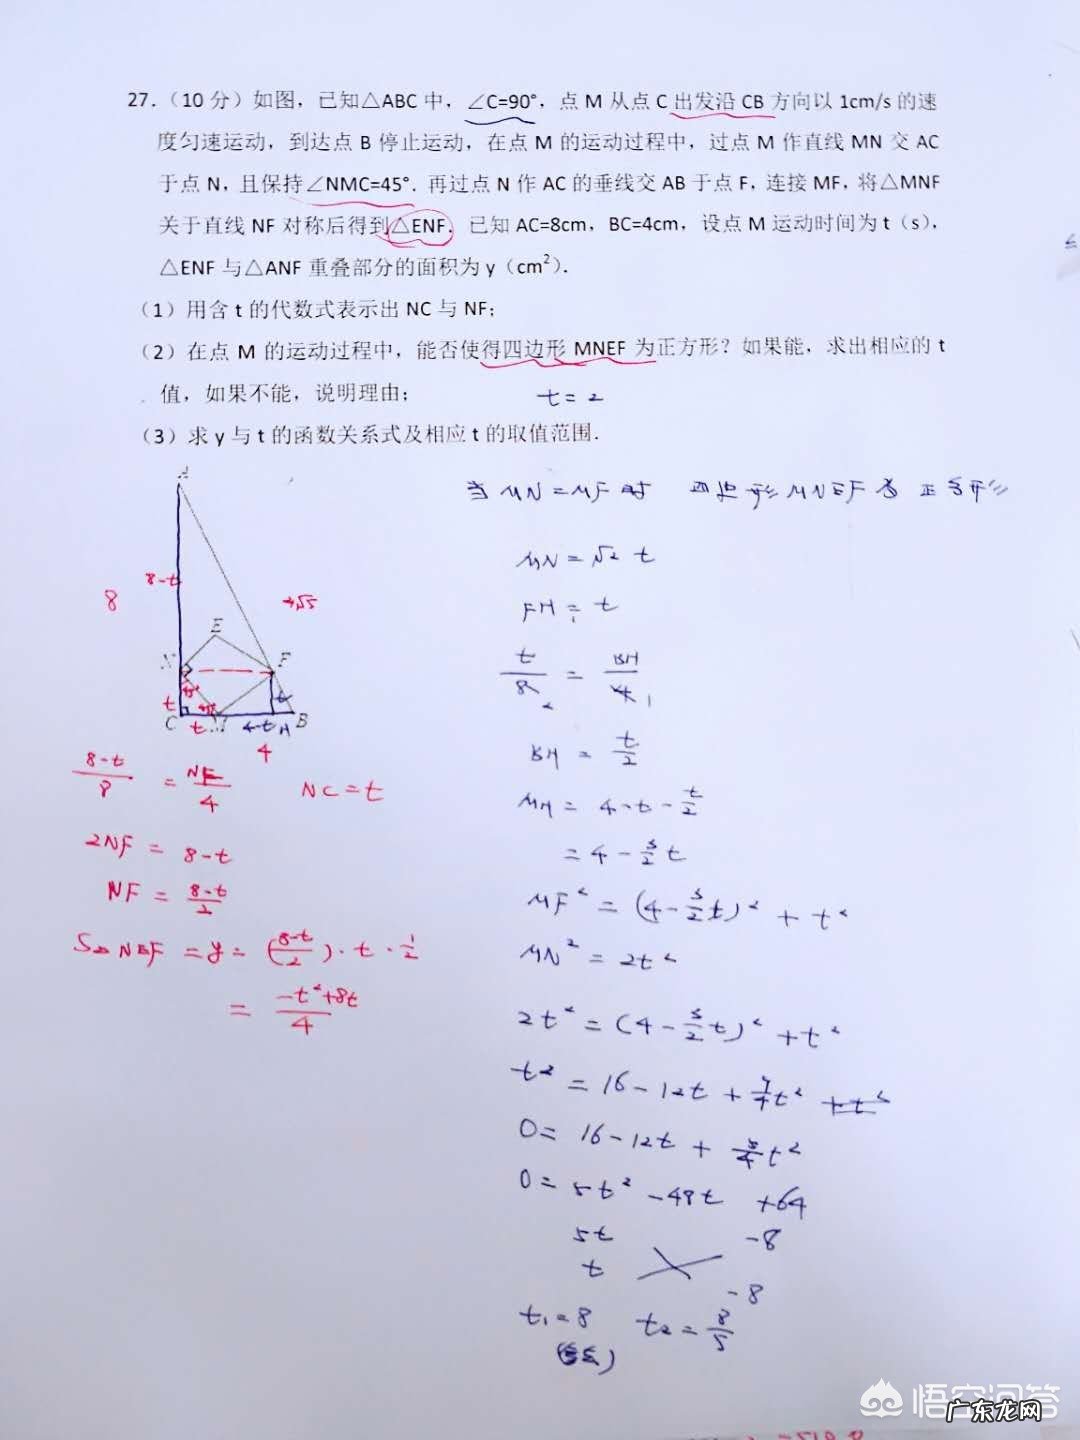 27.（10 分）如图，已知△ABC 中，∠C=90°，点 M 从点 C 出发沿 CB 方向以 1cm/s 的速
度匀速运动，到达点 B 停止运动，在点 M 的运动过程中，过点 M 作直线 MN 交 AC
于点 N，且保持∠NMC=45°．再过点 N 作 AC 的垂线交 AB 于点 F，连接 MF，将△MNF
关于直线 NF 对称后得到△ENF．已知 AC=8cm，BC=4cm，设点 M 运动时间为 t（s），
△ENF 与△ANF 重叠部分的面积为 y（cm²）．
（1）用含 t 的代数式表示出 NC 与 NF；
（2）在点 M 的运动过程中，能否使得四边形 MNEF 为正方形？如果能，求出相应的 t
值，如果不能，说明理由；
t=2
（3）求 y 与 t 的函数关系式及相应 t 的取值范围．
A
8-t
8
E
N
F
45°
t
t
C
t
M
4-t
H
B
4
(8-t)/8 = NF/4
NC=t
2NF = 8-t
NF = (8-t)/2
S△NEF = y = ((8-t)/2)·t·1/2
= (-t²+8t)/4
当 MN=MF 时 四边形 MNEF 为 正方形
MN=√2 t
FH = t
BH = t/2
MH = 4-t-t/2
=4-3/2 t
MF² = (4-3/2 t)² + t²
MN² = 2t²
2t² = (4-3/2 t)² + t²
t² = 16-12t+9/4 t² +t²
0= 16-12t + 5/4 t²
0= 5t² -48t +64
5t -8
t -8
t₁=8 t₂=8/5
悟空问答
广东龙网